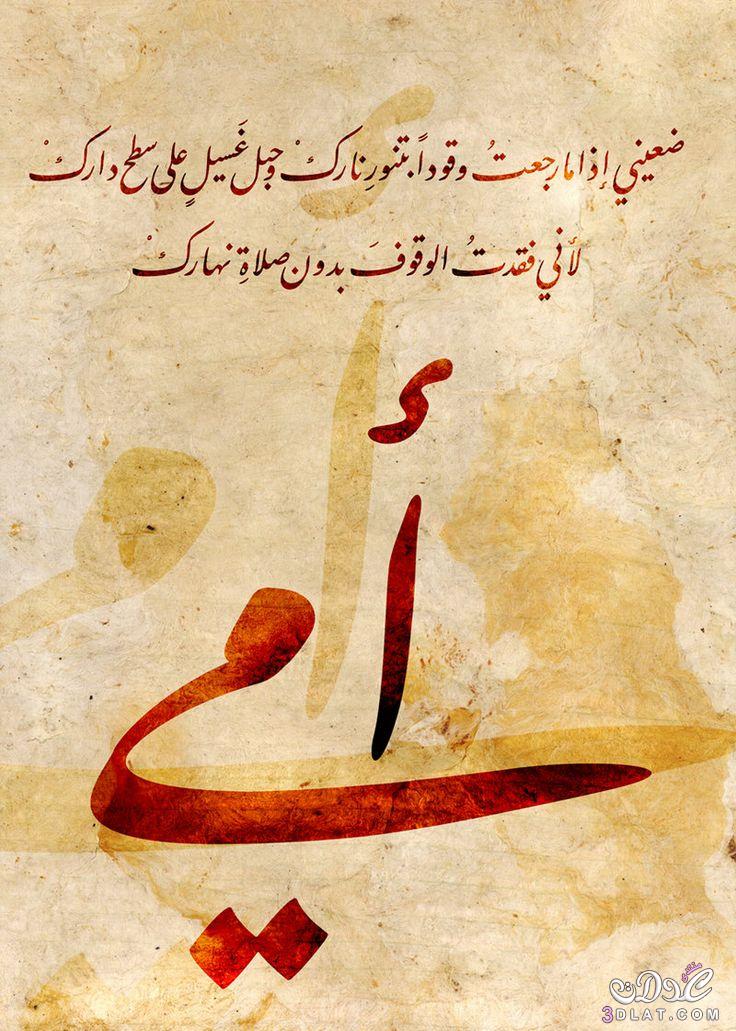 ضعيني إذا ما رجعتُ وقوداً بتنورِ ناركْ وحبل غَسيلٍ على سطح دارك
لأني فقدتُ الوقوفَ بدون صلاةِ نهاركْ
أمي
منتدى عدلات
3DLAT.COM